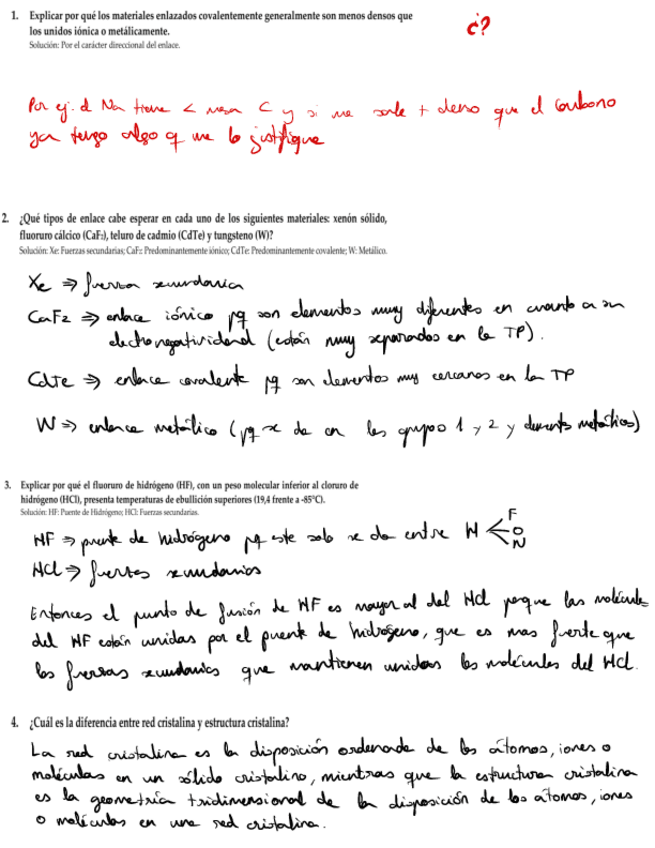 1. Explicar por qué los materiales enlazados covalentemente generalmente son menos densos que
los unidos iónica o metálicamente.
Solución: Por el carácter direccional del enlace.
¿?
Por ej. el Na tiene < masa C y si me sale + denso que el carbono
ya tengo algo q me lo justifique
2. ¿Qué tipos de enlace cabe esperar en cada uno de los siguientes materiales: xenón sólido,
fluoruro cálcico (CaF₂), teluro de cadmio (CdTe) y tungsteno (W)?
Solución: Xe: Fuerzas secundarias; CaF₂: Predominantemente iónico; CdTe: Predominantemente covalente; W: Metálico.
Xe ⇒ fuerza secundaria
CaF2 ⇒ enlace iónico pq son elementos muy diferentes en cuanto a su
electronegatividad (están muy separados en la TP).
CdTe ⇒ enlace covalente pq son elementos muy cercanos en la TP
W ⇒ enlace metálico (pq se da en los grupos 1 y 2 y elements metálicos)
3. Explicar por qué el fluoruro de hidrógeno (HF), con un peso molecular inferior al cloruro de
hidrógeno (HCl), presenta temperaturas de ebullición superiores (19,4 frente a -85°C).
Solución: HF: Puente de Hidrógeno; HCl: Fuerzas secundarias.
HF ⇒ puente de hidrógeno pq este solo se da entre H < F O N
HCl ⇒ fuerzas secundarias
Entonces el punto de fusión de HF es mayor al del HCl porque las moléculas
del HF están unidas por el puente de hidrogeno, que es mas fuerte que
las fuerzas secundarias que mantienen unidas las moléculas del HCl.
4. ¿Cuál es la diferencia entre red cristalina y estructura cristalina?
La red cristalina es la disposición ordenada de los átomos, iones o
moléculas en un sólido cristalino, mientras que la estructura cristalina
es la geometría tridimensional de la disposición de los átomos, iones
o moléculas en una red cristalina.